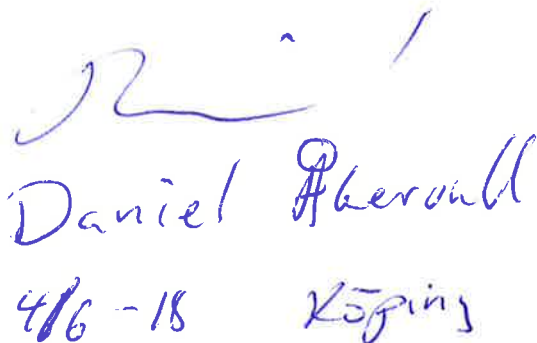 Daniel Åkervall
4/6 -18 Köping